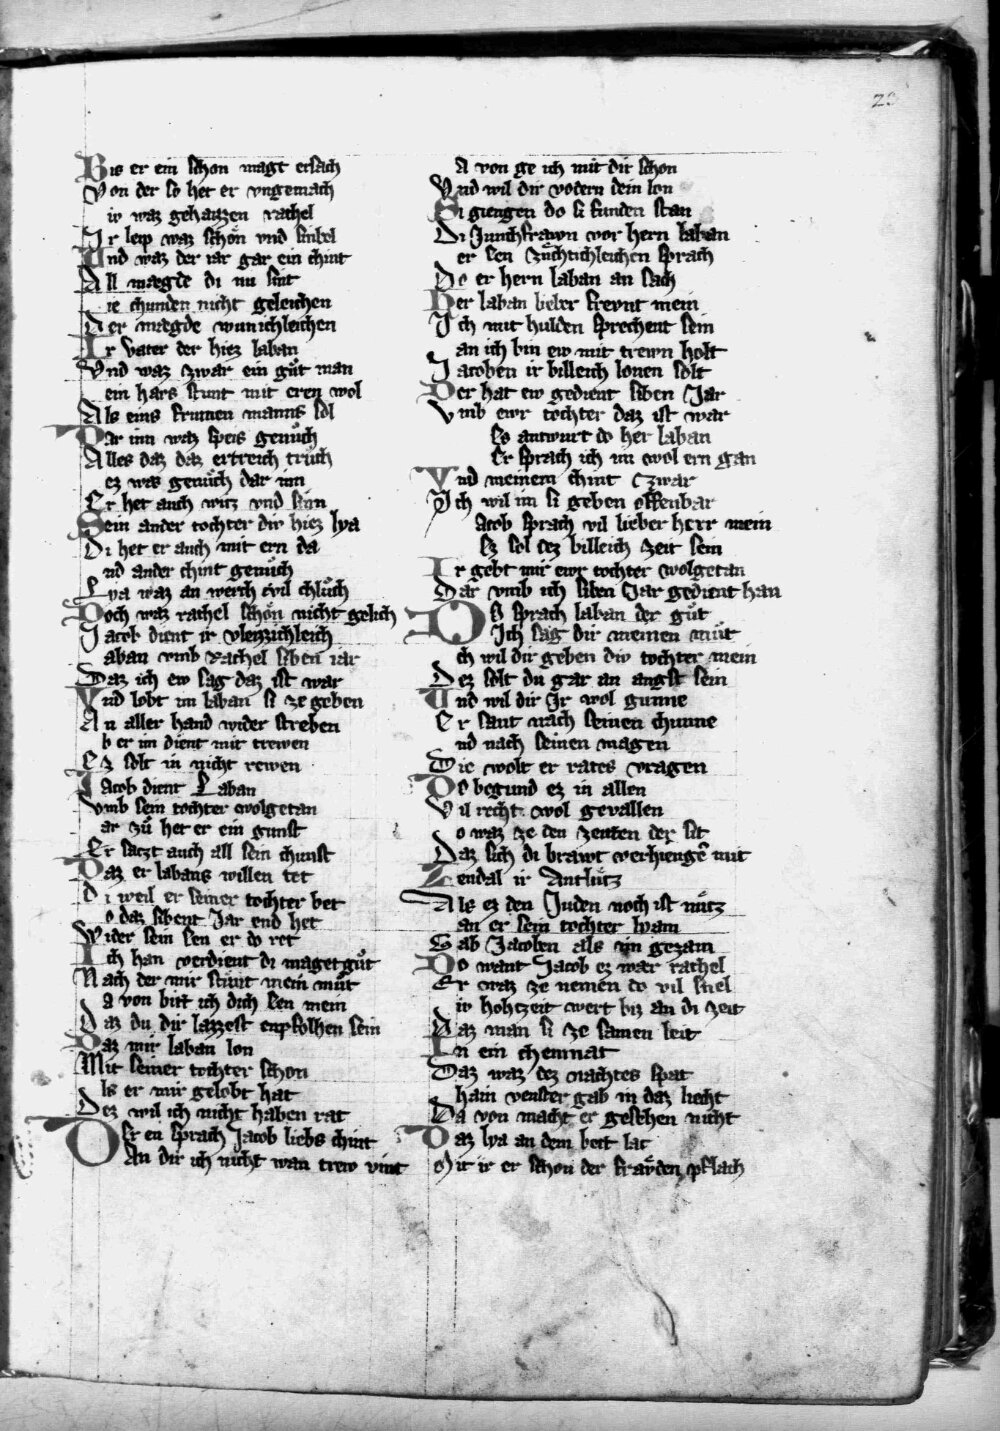 23
Bis er ein schon magt ersach
Von der so het er vngemach
ir waz gehaizzen rachel
Ir leip waz schön vnd sinbel
Vnd waz der iar gar ein chint
All mægde di nu sint
ie chunden nicht geleichen
Der mægde wunichleichen
Ir vater der hiez laban
Vnd waz zwar ein gůt man
ein haus stunt mit eren wol
Als eins frumen manns sol
Dar inn waz speis genůch
Alles daz daz ertreich trůch
ez was genůch dar inn
Er het auch witz vnd sinn
Sein ander tochter div hiez lya
Di het er auch mit ern da
nd ander chint genůch
Lya waz an werch vil chlůch
Doch waz rachel schön nicht gelich
Jacob dient ir vleizzichleich
aban vmb rachel siben iar
Daz ich ew sag daz ist war
Vnd lobt im laban si ze geben
An aller hand wider streben
b er im dient mit trewen
Ez solt in nicht rewen
Jacob dient Laban
Vmb sein tochter wolgetan
ar zů het er ein gunst
Er saczt auch all sein chunst
Daz er labans willen tet
Di weil er seiner tochter bet
o daz sibent Jar end het
Wider sein sen er do ret
Ich han verdient di maget gůt
Nach der mir stůnt mein můt
a von bitt ich dich sen mein
Daz du dir lazzest enpfolhen sein
Daz mir laban lon
Mit seiner tochter schon
ls er mir gelobt hat
Dez wil ich nicht haben rat
Der en sprach Jacob liebs chint
An dir ich nicht wan trew vint
a von ge ich mit dir schon
Vnd wil dir vodern dein lon
Si giengen do si funden stan
Di Junchfrawn vor hern laban
er sen zůchtichleichen sprach
Do er hern laban an sach
Her laban lieber frevnt mein
Ich mit hulden sprechent sein
an ich bin ew mit trewn holt
Jacoben ir billeich lonen solt
Der hat ew gedient siben Jar
Vmb ewr tochter daz ist war
Es antwurt do her laban
Er sprach ich im wol ern gan
Vnd meinem chint zwar
Ich wil im si geben offenbar
acob sprach vil lieber herr mein
Ez sol dez billeich zeit sein
Ir gebt mir ewr tochter wolgetan
Dar vmb ich siben Jar gedient han
Do sprach laban der gůt
Ich sag dir meinen můt
ch wil dir geben div tochter mein
Dez solt du gar an angst sein
Vnd wil dir Ir wol gunne
Er sant nach seinen chunne
nd nach seinen magen
Die wolt er rates vragen
Do begund ez in allen
Vil recht wol gevallen
o waz ze den zeuten der sit
Daz sich di brawt verhienge mit
Zendal ir Antlůtz
Als ez den Juden noch ist nůtz
an er sein tochter lyam
Gab Jacoben als im gezam
Do want Jacob ez war rachel
Er waz ze nemen do vil snel
iv hohtzeit wert biz an di zeit
Daz man si ze samen leit
In ein chemnat
Daz waz dez nachtes spat
hain venster gab in daz liecht
Da von macht er gesehen nicht
Daz lya an dem bett lac
Mit ir er schon der fraẃden pflach